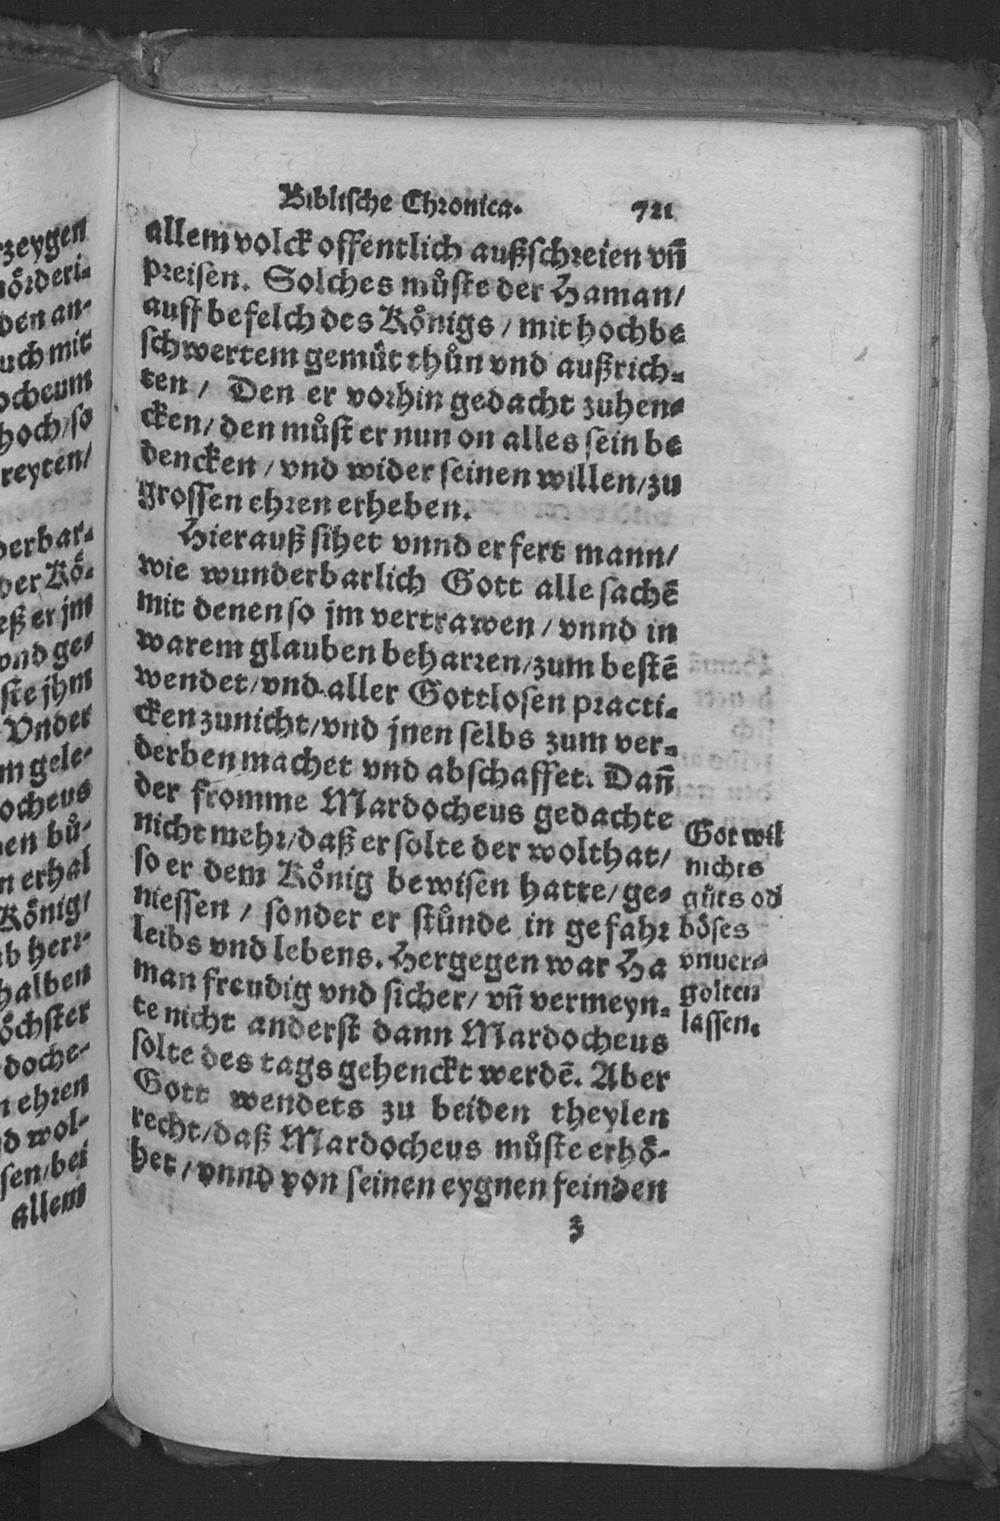 Biblische Chronica. 721
allem volck offentlich außschreien vñ
preisen. Solches můste der Haman/
auff befelch des Königs / mit hochbe
schwertem gemůt thůn vnd außrich-
ten / Den er vorhin gedacht zuhen-
cken/ den můst er nun on alles sein be
dencken / vnd wider seinen willen/zu
grossen ehren erheben.
Hierauß sihet vnnd erfert mann/
wie wunderbarlich Gott alle sachẽ
mit denen so jm vertrawen / vnnd in
warem glauben beharren/zum bestẽ
wendet/vnd aller Gottlosen practi-
cken zunicht/vnd jnen selbs zum ver-
derben machet vnd abschaffet. Dañ
der fromme Mardocheus gedachte
nicht mehr/daß er solte der wolthat/
so er dem König bewisen hatte/ge-
niessen / sonder er stůnde in gefahr
leibs vnd lebens. Hergegen war Ha
man freudig vnd sicher/ vñ vermeyn-
te nicht anderst dann Mardocheus
solte des tags gehenckt werdẽ. Aber
Gott wendets zu beiden theylen
recht/daß Mardocheus můste erhö-
het / vnnd von seinen eygnen feinden
Got wil
nichts
gůts od
böses
vnuer-
golten
lassen.
z
rzeygen
mörderi-
den an-
uch mit
ocheum
hoch/so
reyten/
derbar-
der Kö-
eß er jm
vnd ge-
ste jhm
Vnder
m gele-
ocheus
en bů-
n erhal
König/
b herr-
halben
öchster
doche-
n ehren
d wol-
sen/bei
allem